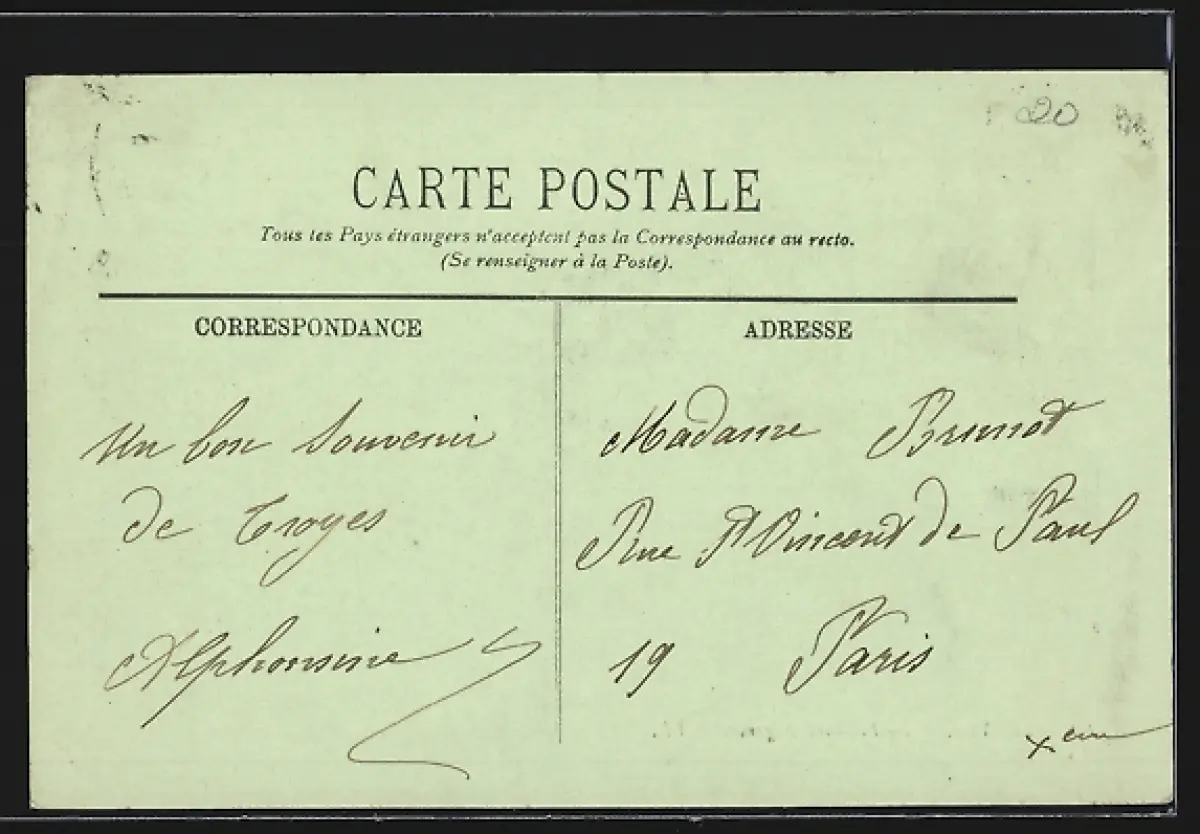 20
CARTE POSTALE
Tous les Pays étrangers n'acceptent pas la Correspondance au recto.
(Se renseigner à la Poste).
CORRESPONDANCE
Un bon Souvenir
de Troyes
Alphonsine
ADRESSE
Madame Brunot
Rue St Vincent de Paul
19 Paris
Xeme